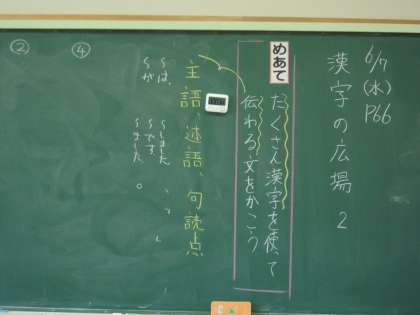 6/7(水)
P66
漢字の広場 2
めあて
たくさん漢字を使って
伝わる文をかこう
主語、述語、句読点
〜は、
〜が
〜しました
〜です
〜ました
。
、
④
②